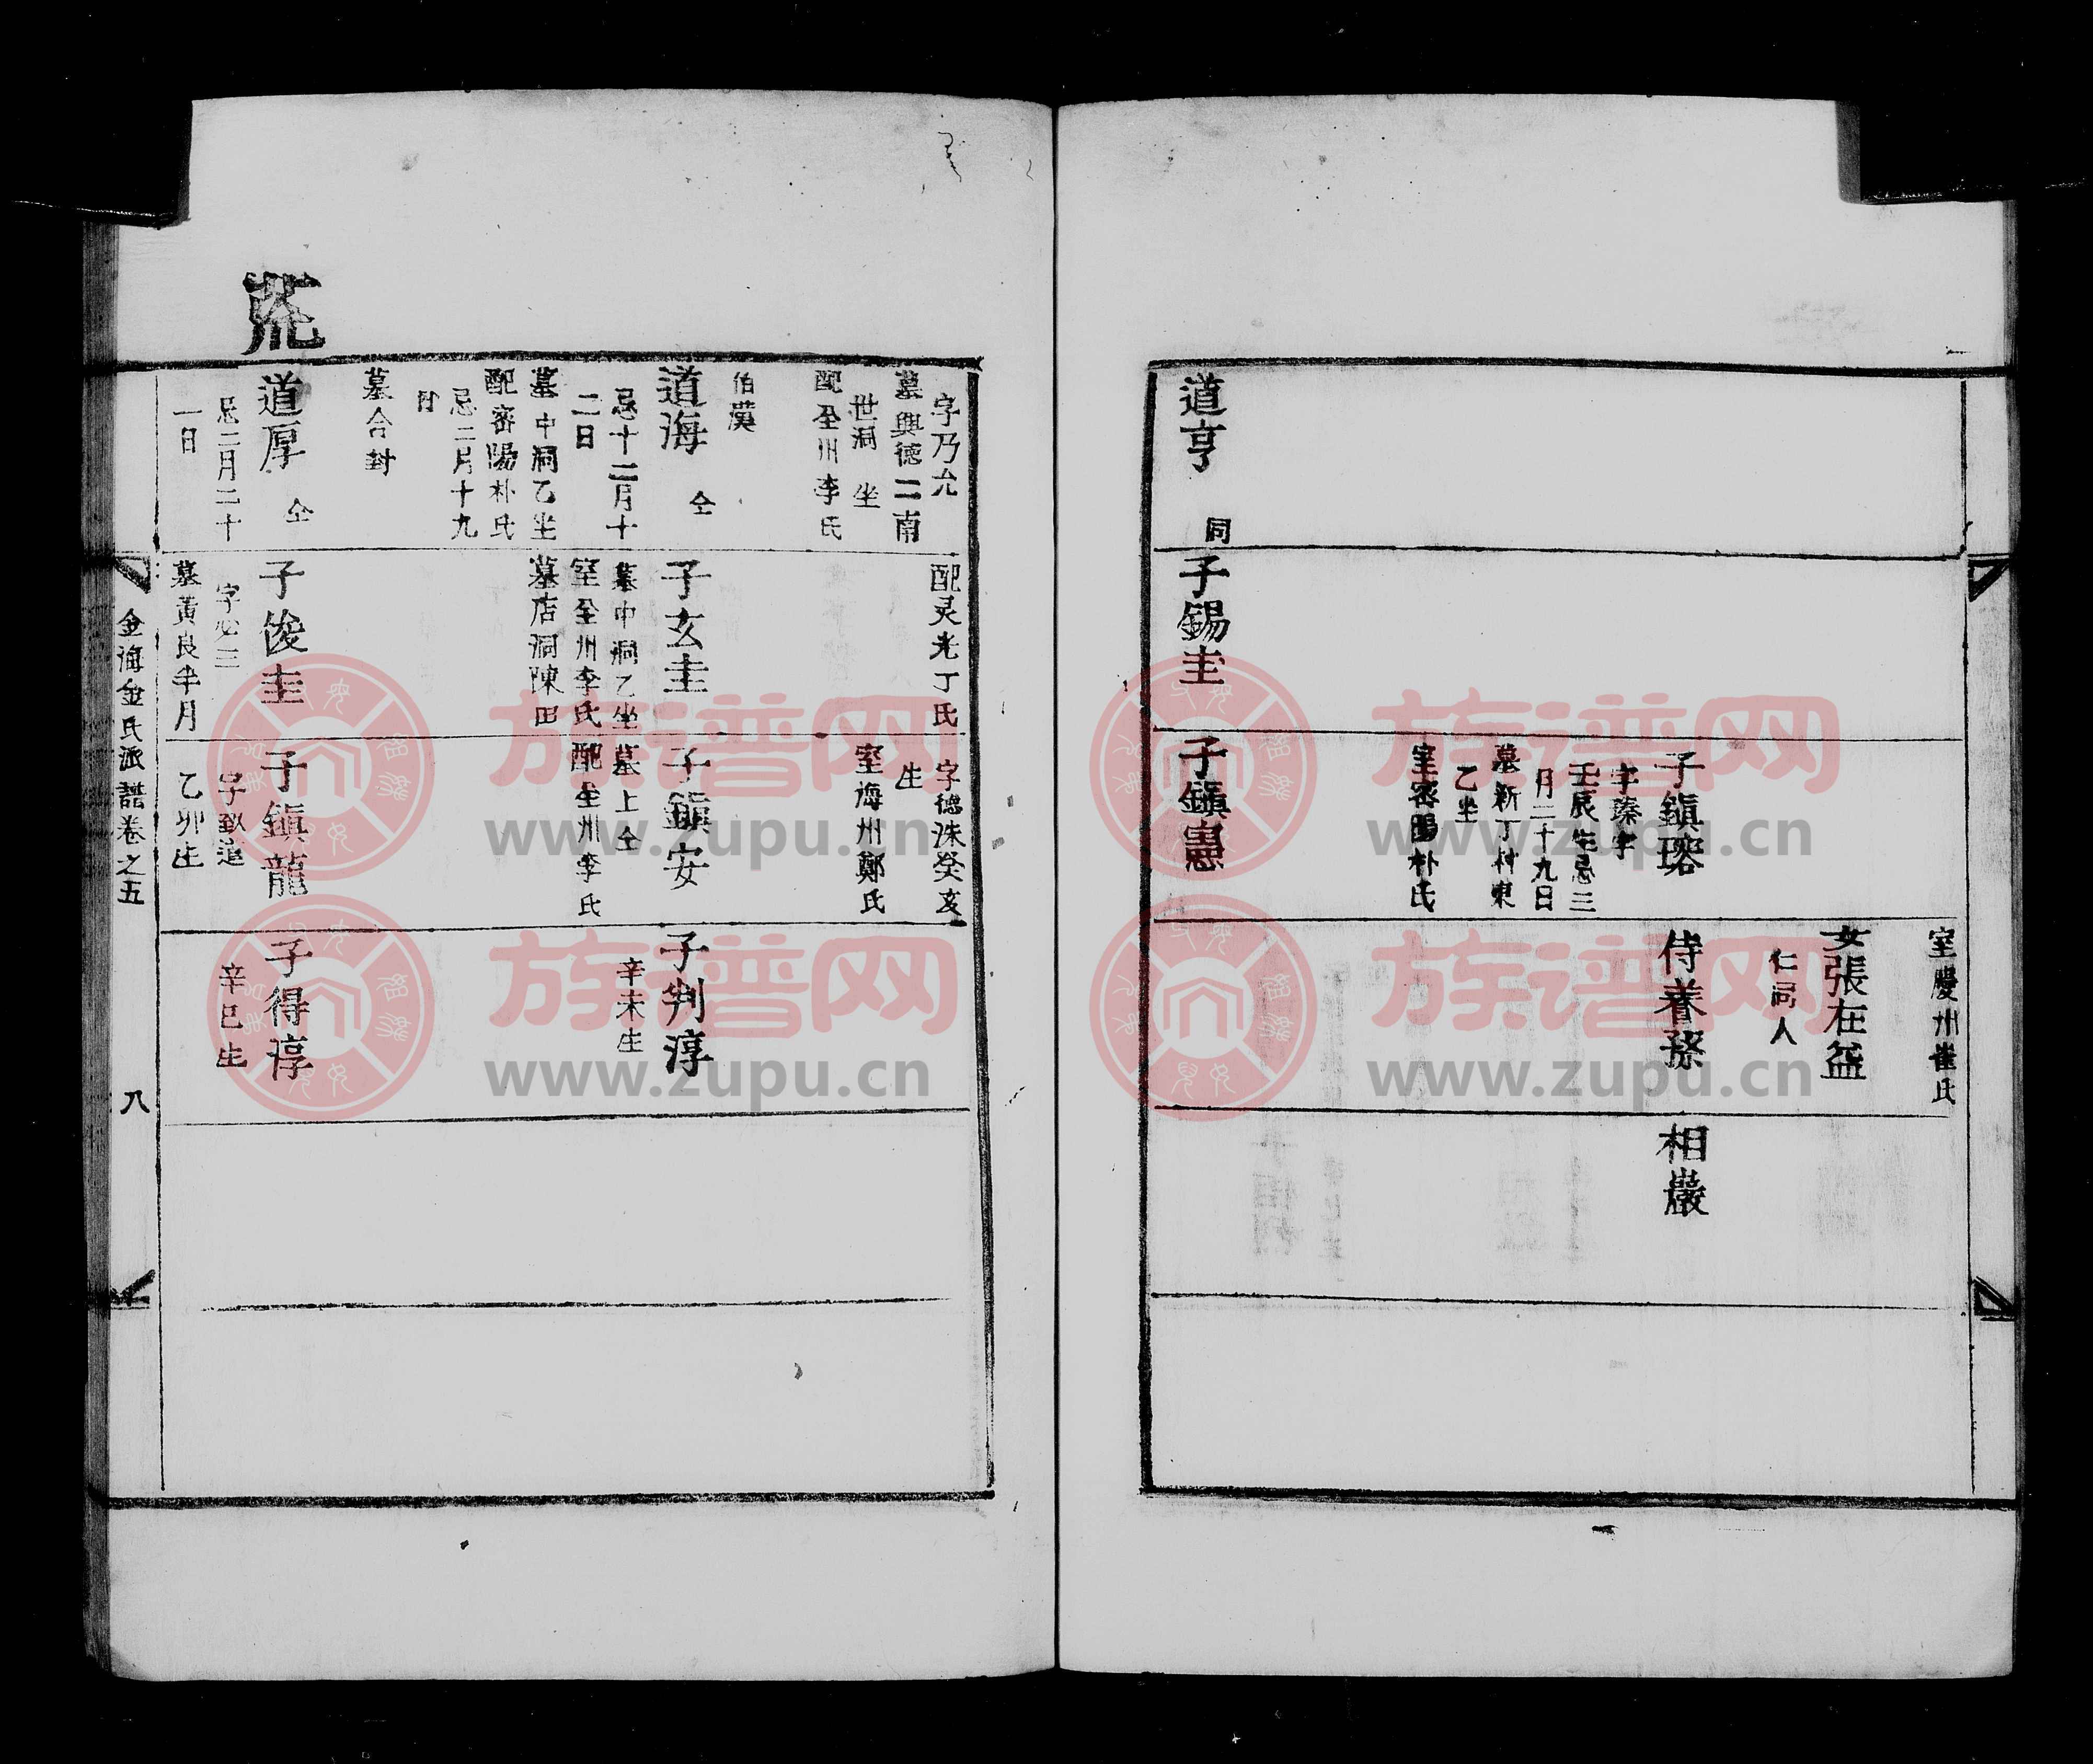 室慶州崔氏
女張在益
仁同人
子鎭瑢
字臻宇
壬辰生忌三
月二十九日
墓新丁村東
乙坐
室密陽朴氏
侍養孫
相巖
道亨 同
子錫圭
子鎭憲
荒
字乃允
墓興德二南
世洞 坐
配全州李氏
伯漢
道海 仝
忌十二月十
二日
墓中洞乙坐
配密陽朴氏
忌二月十九
日
墓合封
道厚 仝
忌二月二十
一日
配灵光丁氏
子玄圭
墓中洞乙坐
室全州李氏
墓店洞陳田
子俊圭
字必三
墓黃良半月
字德洙癸亥
生
室海州鄭氏
子鎭安
墓上仝
配全州李氏
子鎭龍
字致遠
乙卯生
子判淳
辛未生
子得淳
辛巳生
金海金氏派譜卷之五
八
族谱网
www.zupu.cn
族谱网
www.zupu.cn
族谱网
www.zupu.cn
族谱网
www.zupu.cn